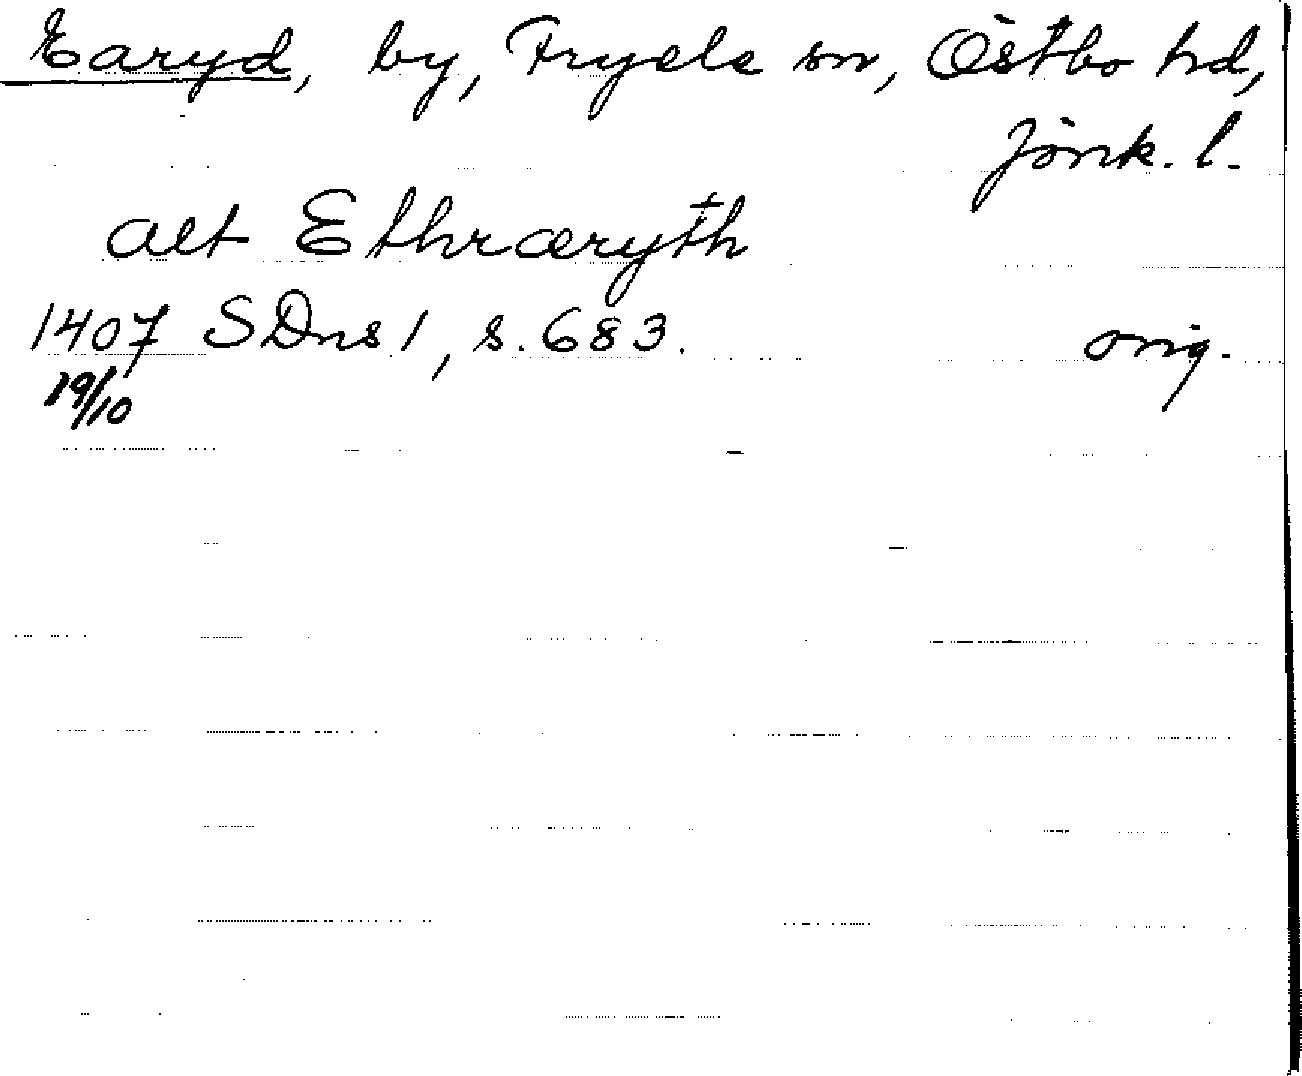 Earyd, by, Fryele sn, Östbo hd,
Jönk. l.
alt Ethræryth
1407 SDns 1, s. 683. orig.
19/10